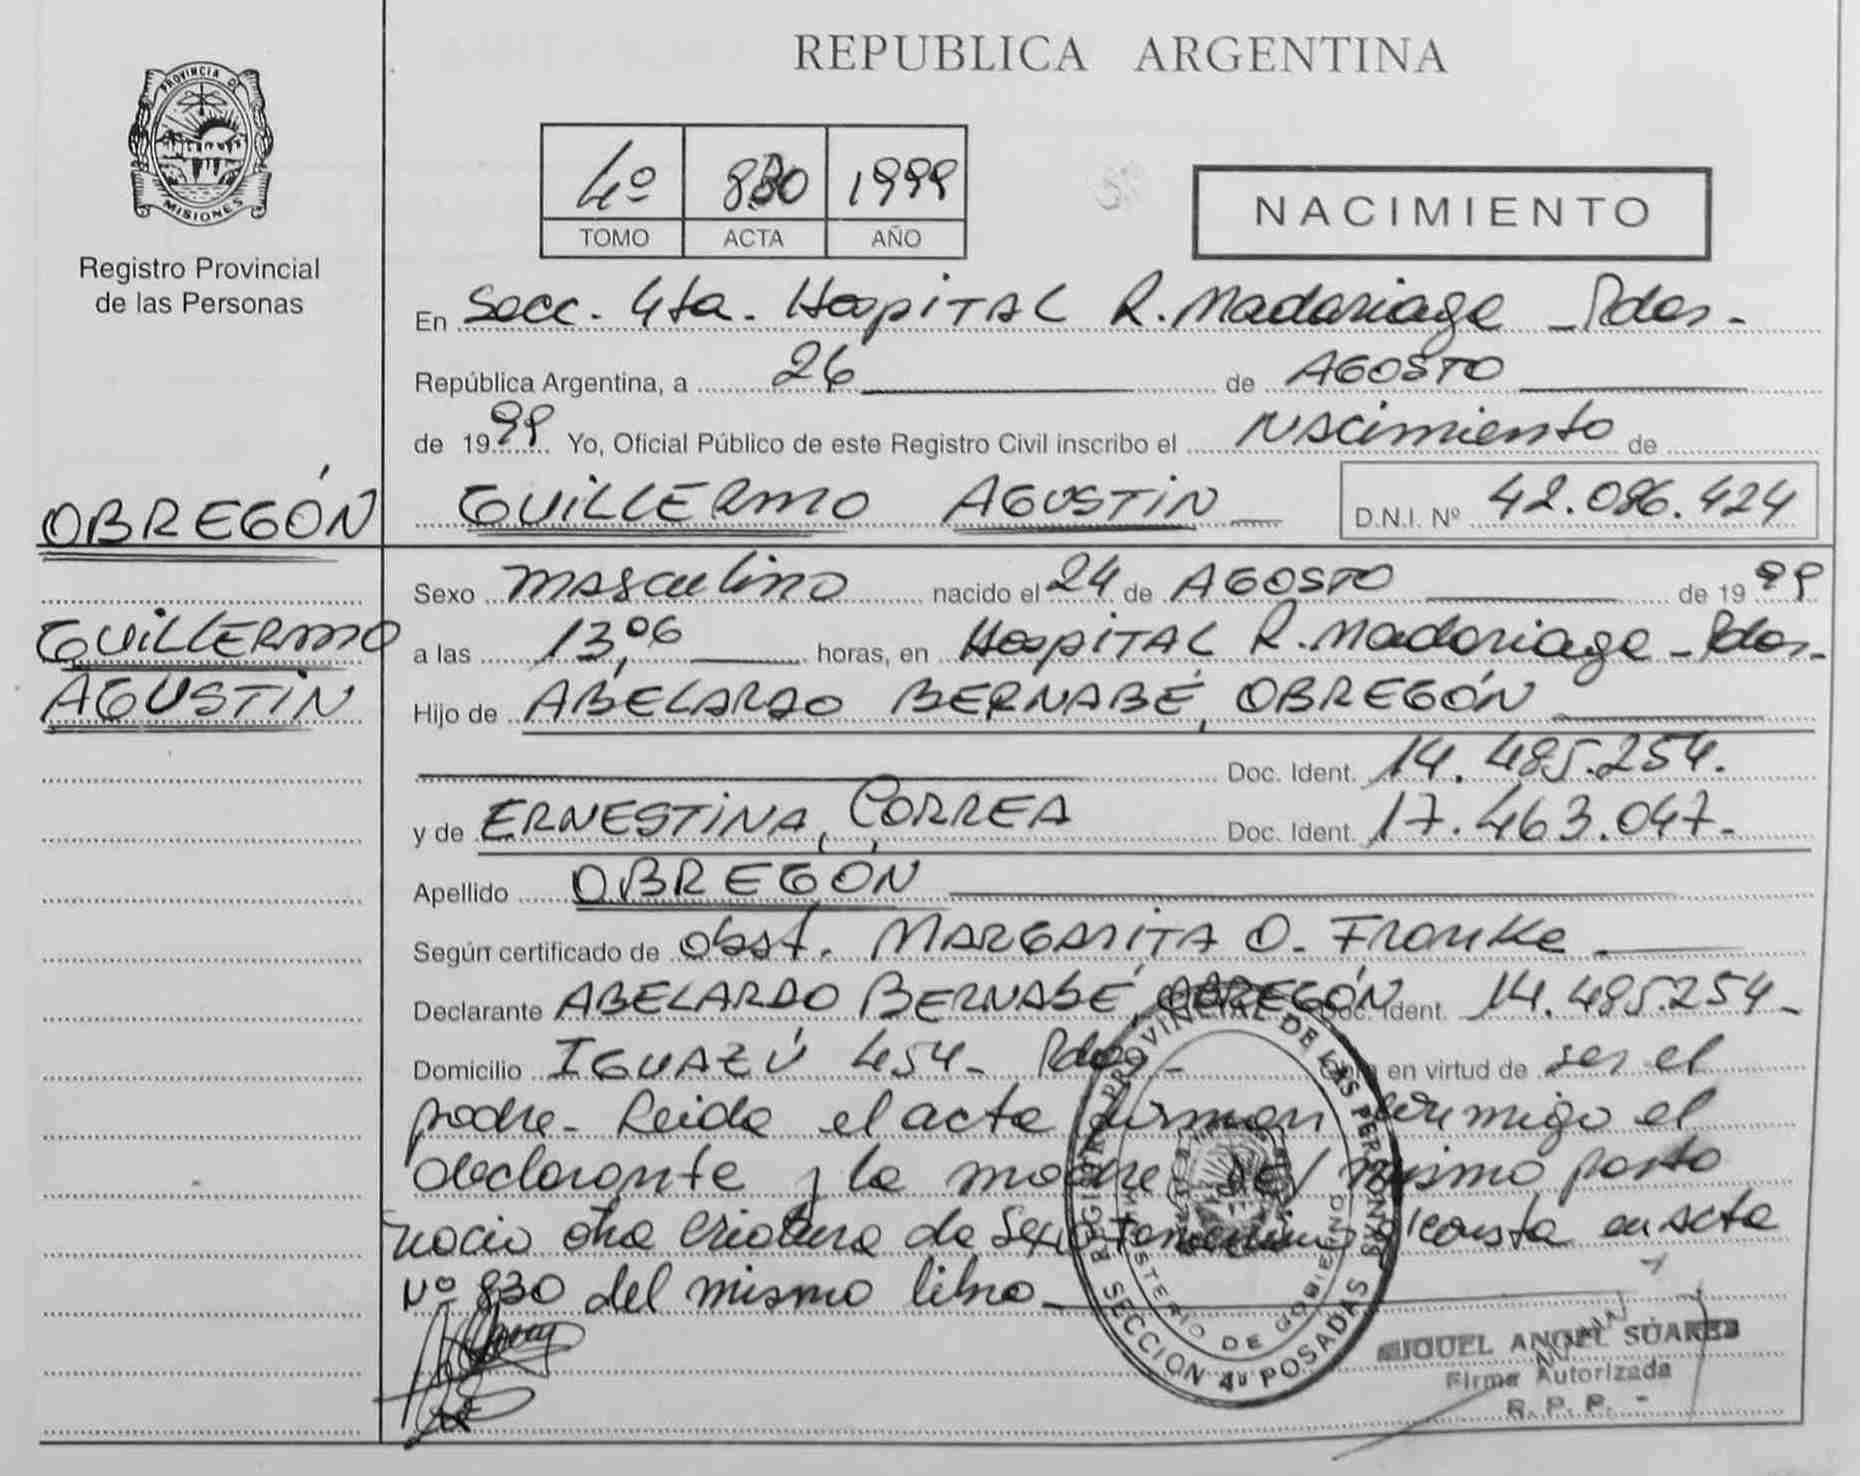 REPUBLICA ARGENTINA
PROVINCIA DE
MISIONES
Registro Provincial
de las Personas
4º 830 1999
TOMO ACTA AÑO
NACIMIENTO
En Secc. 4ta. Hospital R. Madariaga - Pdas -
República Argentina, a 26 de AGOSTO
de 1999 Yo, Oficial Público de este Registro Civil inscribo el Nacimiento de
GUILLERMO AGUSTIN D.N.I. Nº 42.086.424
OBREGÓN
GUILLERMO
AGUSTIN
Sexo masculino nacido el 24 de AGOSTO de 1999
a las 13,06 horas, en Hospital R. Madariaga - Pdas -
Hijo de ABELARDO BERNABÉ, OBREGÓN
Doc. Ident. 14.485.254.
y de ERNESTINA, CORREA Doc. Ident. 17.463.047-
Apellido OBREGÓN
Según certificado de obst. MARGARITA O. Franke -
Declarante ABELARDO BERNABÉ, OBREGÓN Doc. Ident. 14.485.254-
Domicilio IGUAZÚ 454- Pdas - en virtud de ser el
padre - Leida el acta firman conmigo el
declarante y la madre del mismo parto
nacio otra criatura de sexo femenino consta en acta
Nº 830 del mismo libro -
REGISTRO PROVINCIAL DE LAS PERSONAS
MINISTERIO DE GOBIERNO
SECCION 4ª POSADAS
MIGUEL ANGEL SUAREZ
Firma Autorizada
R. P. P. -